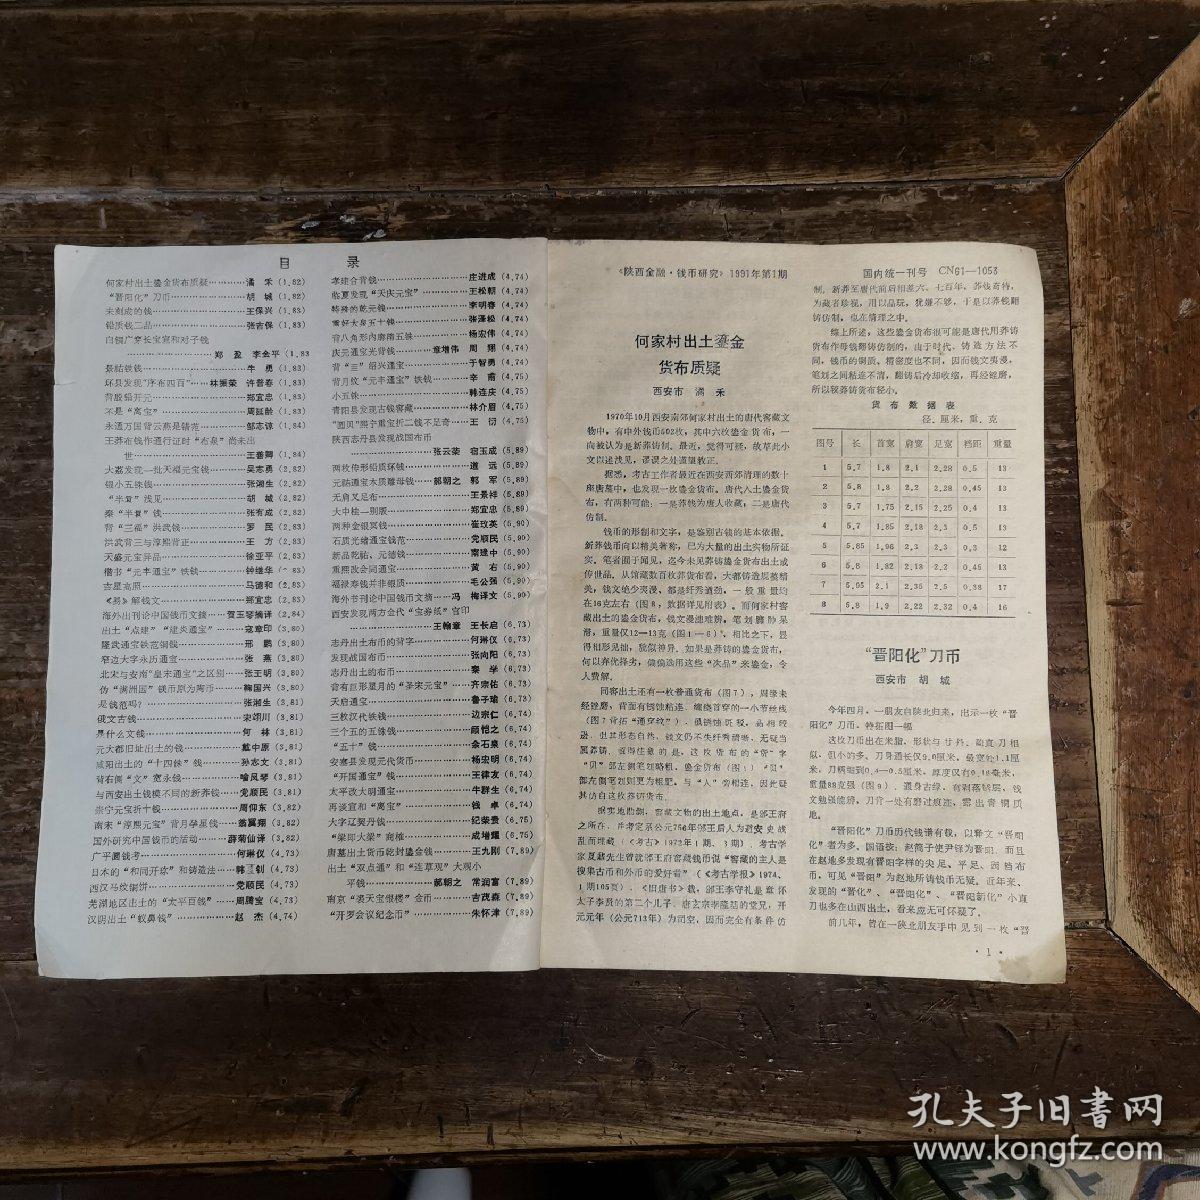 目 录
何家村出土鎏金货布质疑……潘 禾(1.82)
“晋阳化”刀币……胡 城(1.82)
未刻成的钱……王保兴(1.83)
铅质钱二品……张吉保(1.83)
白铜广穿长宝宣和对子钱
……郑 盈 李全平(1.83
景祐铁钱……牛 勇(1.83)
环县发现“序布四百”…林振荣 许普春(1.83)
背殷铅开元……郑宜忠(1.83)
不是“离宝”……周延龄(1.83)
永通万国背云燕是错范……邹志谅(1.84)
王莽布钱作通行证时“右泉”尚未出
世……王善卿(1.84)
大荔发现一批天福元宝钱……吴志勇(2.82)
银小五铢钱……张湘生(2.82)
“半瞏”浅见……胡 城(2.82)
秦“半瞏”钱……张有成(2.82)
背“三福”洪武钱……罗 民(2.83)
洪武背三与淳熙背正……王 方(2.83)
天盛元宝异品……徐亚平(2.83)
楷书“元丰通宝”铁钱……钟继华(2.83)
吉星克照……马德和(2.83)
《易》解钱文……郑宜忠(2.83)
海外出刊论中国钱币文摘……贺玉琴摘译(2.84)
出土“点建”“建炎通宝”……寇章印(3.80)
隆武通宝铁范铜钱……邢 鹏(3.80)
窄边大字永历通宝……张 燕(3.80)
北宋与安南“皇宋通宝”之区别…张王明(3.80)
伪“满洲国”镁币原为陶币……鞠国兴(3.80)
是钱范吗?……张湘生(3.81)
俄文古钱……宋翊川(3.81)
是什么文钱……何 林(3.81)
元大都旧址出土的钱……戴中原(3.81)
咸阳出土的“十四铢”钱……孙志文(3.81)
背右侧“文”宽永钱……喻凤琴(3.81)
与西安出土钱模不同的新莽钱…党顺民(3.81)
崇宁元宝折十钱……周仰东(3.82)
南宋“淳熙元宝”背月孕星钱…翁翼翔(3.82)
国外研究中国钱币的活动……薛菊仙译(3.82)
广平圜钱考……何琳仪(4.73)
日本的“和同开珎”和铸造法…韩 钊(4.73)
西汉马纹铜饼……党顺民(4.73)
芜湖地区出土的“太平百钱”…周腾宝(4.73)
汉阴出土“蚁鼻钱”……赵 杰(4.74)
孝建合背钱……庄进成(4.74)
临夏发现“天庆元宝”……王松朝(4.74)
特殊的乾元钱……李明春(4.74)
重好大泉五十钱……张泽松(4.74)
背八角形内廓南五铢……杨宏伟(4.74)
庆元通宝光背钱……章增伟 周 翔(4.74)
背“三”绍兴通宝……于智勇(4.74)
背月纹“元丰通宝”铁钱……辛 甫(4.75)
小五铢……韩连庆(4.75)
青阳县发现古钱窖藏……林介眉(4.75)
“圆贝”熙宁重宝折二钱不足奇……王 衍(4.75)
陕西志丹县发现战国布币
……张云荣 窑玉成(5.89)
两枚传形铅质环钱……道 远(5.89)
元祐通宝木质雕母钱……郝朝之 郭 军(5.89)
无肩叉足布……王景祥(5.89)
大中桂一别版……郑宜忠(5.89)
两种金银冥钱……崔玫英(5.90)
石质光绪通宝钱范……党顺民(5.90)
新品乾祐、元德钱……南建中(5.90)
重熙改会同通宝……黄 右(5.90)
福禄寿钱并非银质……毛公强(5.90)
海外书刊论中国钱币文摘……冯 梅译文(5.90)
西安发现两方金代“宝券纸”官印
……王翰章 王长启(6.73)
志丹出土布币的背字……何琳仪(6.73)
发现战国布币……张向阳(6.73)
志丹出土的布币……秦 学(6.73)
背有巨形星月的“圣宋元宝”……齐宗佑(6.73)
天启通宝……鲁子瑜(6.73)
三枚汉代铁钱……边宗仁(6.74)
三个五的五铢钱……顾恺之(6.74)
“五十”钱……余石泉(6.74)
安塞县发现元代货币……杨宏明(6.74)
“开国通宝”钱……王律友(6.74)
太平改大明通宝……牛群生(6.74)
再谈宣和“离宝”……钱 卓(6.74)
大字辽契丹钱……纪荣贵(6.75)
“梁即大梁”商榷……成增耀(6.75)
唐墓出土货币乾封鎏金钱……王九刚(7.89)
出土“双点通”和“连草观”大观小
平钱……郝朝之 常润富(7.89)
南京“裘天宝银楼”金币……吉茂森(7.89)
“开罗会议纪念币”……朱怀津(7.89)
《陕西金融·钱币研究》1991年第1期
国内统一刊号 CN61—1053
何家村出土鎏金
货布质疑
西安市 潘 禾
1970年10月西安南郊何家村出土的唐代窖藏文
物中,有中外钱币502枚,其中六枚鎏金货布,一
向被认为是新莽铸制。最近,觉得可疑,故草此小
文以述浅见,谬误之处遥望教正。
据悉,考古工作者最近在西安西郊清理的数十
座唐墓中,也发现一枚鎏金货布。唐代入土鎏金货
布,有两种可能:一是莽钱为唐人收藏,二是唐代
仿制。
钱币的形制和文字,是鉴别古钱的基本依据。
新莽钱币向以精美著称,已为大量的出土实物所证
实。笔者囿于闻见,迄今未见莽铸鎏金货布出土或
传世品。从馆藏数百枚莽货布看,大都铸造规整精
美,钱文绝少夷漫,都是纤秀遒劲。一般重量均
在16克左右(图8,数据详见附表)。而何家村窖
藏出土的鎏金货布,钱文漫漶难辨,笔划臃肿呆
滞,重量仅12—13克(图1—6)。相比之下,显
得相形见拙,貌似神异。如果是莽铸的鎏金货布,
何以弃优择劣,偏偏选用这些“次品”来鎏金,令
人费解。
同窖出土还有一枚普通货布(图7),周缘未
经锉磨,背面有锈蚀粘连、缠绕首穿的一小节丝线
据实地勘测,窖藏文物的出土地点,是邠王府
之所在,并考定系公元756年邠王后人为避安史战
乱而埋藏(《考古》1972年1期、3期)。考古学
家夏鼐先生曾就邠王府窖藏钱币说“窖藏的主人是
搜集古币和外币的爱好者”(《考古学报》1974、
1期105页)。《旧唐书》载,邠王李守礼是章怀
太子李贤的第二个儿子、唐玄宗李隆基的堂兄,开
元元年(公元713年)为司空,因而完全有条件仿
制。新莽至唐代前后相差六、七百年,莽钱奇特,
为藏者珍视,用以品玩,犹嫌不够,于是以莽钱翻
铸仿制,也在情理之中。
综上所述,这些鎏金货布很可能是唐代用莽铸
货布作母钱翻铸仿制的,由于时代、铸造方法不
同,钱币的铜质、精密度也不同,因而钱文夷漫,
笔划之间粘连不清,翻铸后冷却收缩,再经锉磨,
所以较莽铸货布轻小。
货 布 数 据 表
径:厘米,重:克
图号 长 首宽 肩宽 足宽 裆距 重量
1 5.7 1.8 2.1 2.28 0.5 13
2 5.8 1.8 2.2 2.28 0.45 13
3 5.7 1.75 2.15 2.25 0.4 13
4 5.7 1.85 2.18 2.3 0.5 13
5 5.85 1.96 2.3 2.3 0.3 12
6 5.8 1.82 2.18 2.2 0.4 13
7 5.95 2.1 2.35 2.5 0.38 17
8 5.8 1.9 2.22 2.32 0.4 16
“晋阳化”刀币
西安市 胡 城
今年四月,一朋友自陕北归来,出示一枚“晋
阳化”刀币。特拓图一幅。
“晋阳化”刀币历代钱谱有载,以释文“晋阳
化”者为多。国语谈:赵简子使尹铎为晋阳。而且
在赵地多发现有晋阳字样的尖足、平足、圆裆布
币,可见“晋阳”为赵地所铸钱币无疑。近年来,
发现的“晋化”、“晋阳化”、“晋阳新化”小直
刀也多在山西出土,看来应无可怀疑了。
前几年,曾在一陕北朋友手中见到一枚“晋
·1·
孔夫子旧书网
www.kongfz.com